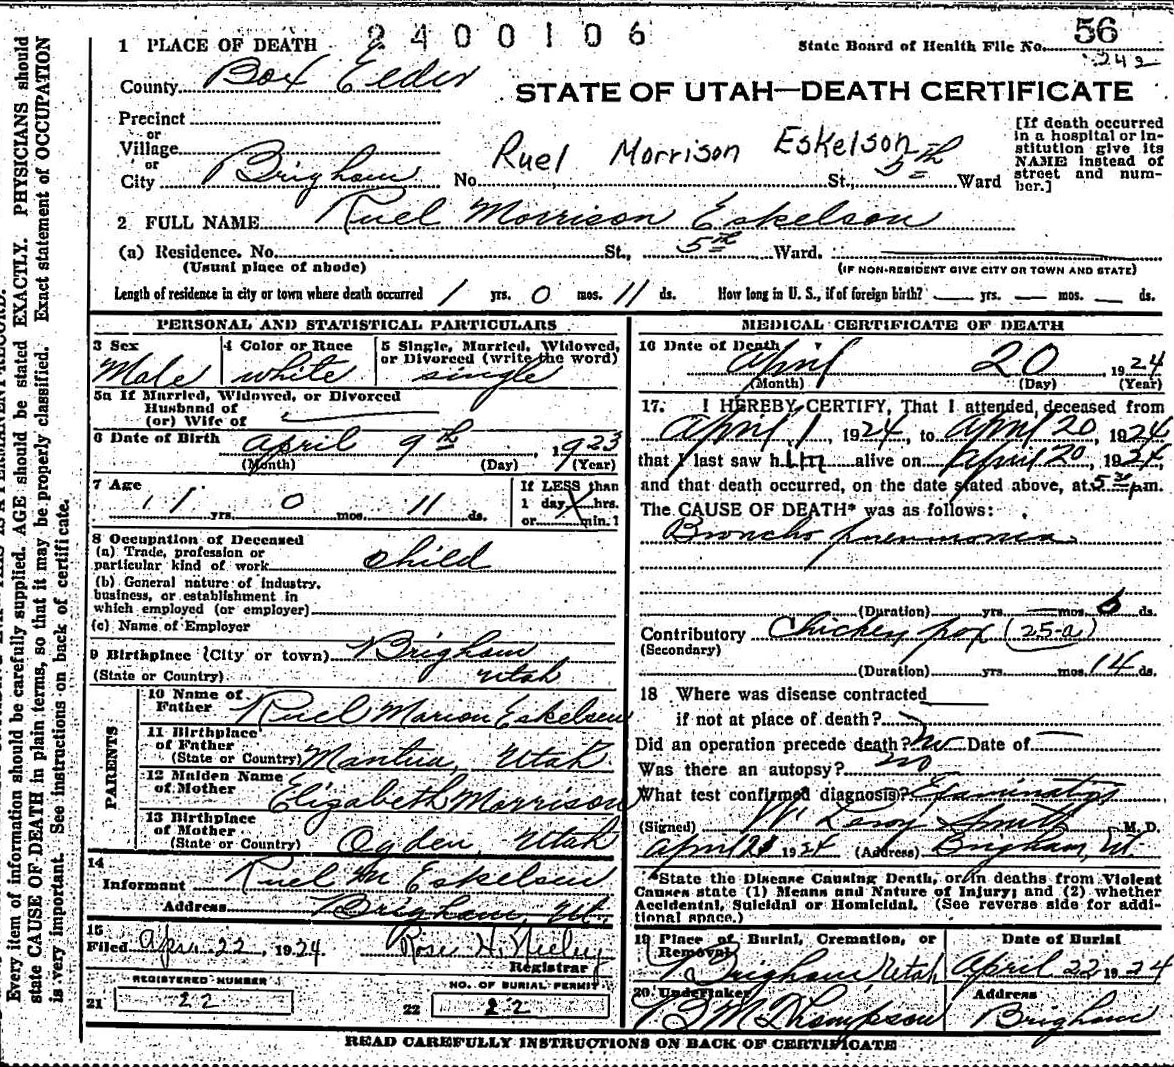 2400106
56
State Board of Health File No.
242
1 PLACE OF DEATH
County Box Elder
STATE OF UTAH—DEATH CERTIFICATE
Precinct
or
Village
or
City Brigham No. St., 5th Ward
Ruel Morrison Eskelson
[If death occurred in a hospital or institution give its NAME instead of street and number.]
2 FULL NAME Ruel Morrison Eskelson
(a) Residence. No. St., 5th Ward.
(Usual place of abode) (IF NON-RESIDENT GIVE CITY OR TOWN AND STATE)
Length of residence in city or town where death occurred 1 yrs. 0 mos. 11 ds. How long in U. S., if of foreign birth? — yrs. — mos. — ds.
PERSONAL AND STATISTICAL PARTICULARS
3 Sex Male
4 Color or Race white
5 Single, Married, Widowed, or Divorced (write the word) single
5a If Married, Widowed, or Divorced
Husband of
(or) Wife of
6 Date of Birth April 9th, 1923
(Month) (Day) (Year)
7 Age 1 yrs. 0 mos. 11 ds.
If LESS than
1 day, hrs.
or min.
8 Occupation of Deceased
(a) Trade, profession or
particular kind of work child
(b) General nature of industry,
business, or establishment in
which employed (or employer)
(c) Name of Employer
9 Birthplace (City or town) Brigham
(State or Country) Utah
PARENTS
10 Name of Father Ruel Marion Eskelsen
11 Birthplace of Father
(State or Country) Mantua, Utah
12 Maiden Name of Mother Elizabeth Morrison
13 Birthplace of Mother
(State or Country) Ogden, Utah
14
Informant Ruel M Eskelsen
Address Brigham, Ut.
15
Filed Apr. 22, 1924 Rose H. Neeley
Registrar
REGISTERED NUMBER
21 22
NO. OF BURIAL PERMIT
22 22
MEDICAL CERTIFICATE OF DEATH
16 Date of Death April 20 1924
(Month) (Day) (Year)
17. I HEREBY CERTIFY, That I attended, deceased from
April 1, 1924, to April 20, 1924
that I last saw him alive on April 20, 1924,
and that death occurred, on the date stated above, at 5 30 pm.
The CAUSE OF DEATH* was as follows:
Broncho pneumonia
(Duration) yrs. — mos. 6 ds.
Contributory Chicken pox (25-a)
(Secondary)
(Duration) yrs. mos. 14 ds.
18 Where was disease contracted
if not at place of death?
Did an operation precede death? no Date of —
Was there an autopsy? no
What test confirmed diagnosis? Examination
(Signed) W Leroy Smith M. D.
April 21 1924 (Address) Brigham, Ut.
*State the Disease Causing Death, or in deaths from Violent
Causes state (1) Means and Nature of Injury; and (2) whether
Accidental, Suicidal or Homicidal. (See reverse side for addi-
tional space.)
19 Place of Burial, Cremation, or Removal Brigham Utah
Date of Burial April 22 1924
20 Undertaker M Thompson
Address Brigham
READ CAREFULLY INSTRUCTIONS ON BACK OF CERTIFICATE
Every item of information should be carefully supplied. AGE should be stated EXACTLY. PHYSICIANS should
state CAUSE OF DEATH in plain terms, so that it may be properly classified. Exact statement of OCCUPATION
is very important. See instructions on back of certificate.